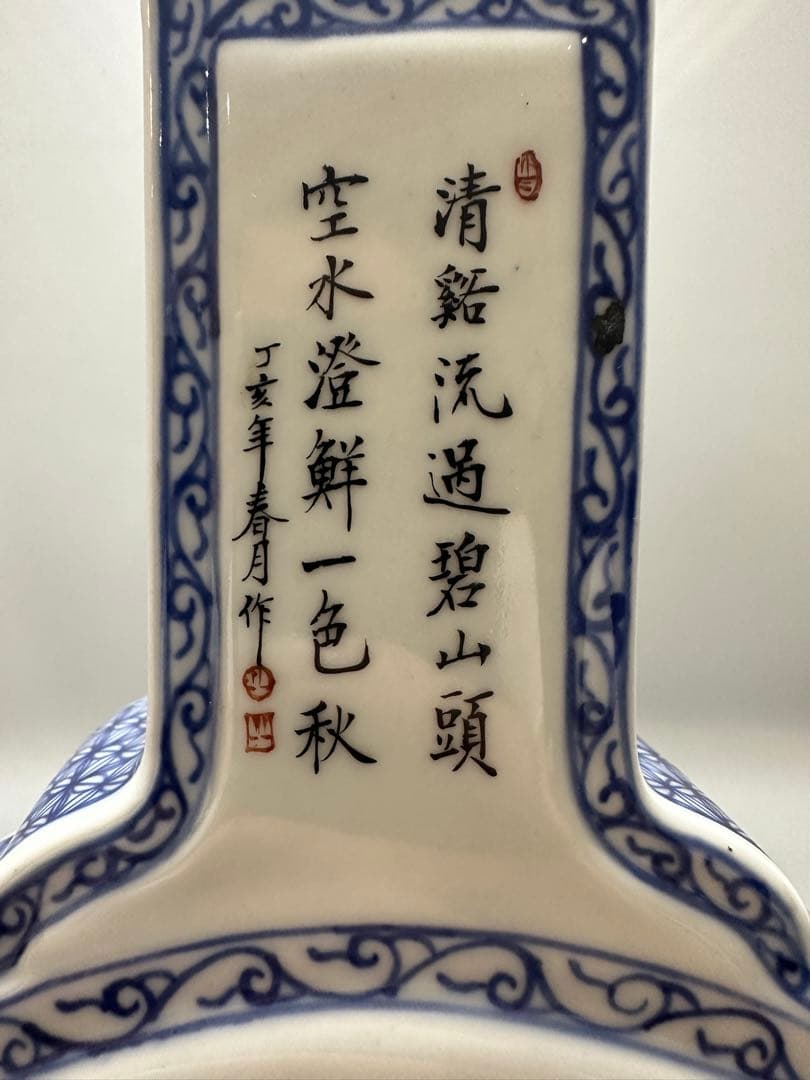 清谿流過碧山頭
空水澄鮮一色秋
丁亥年春月作